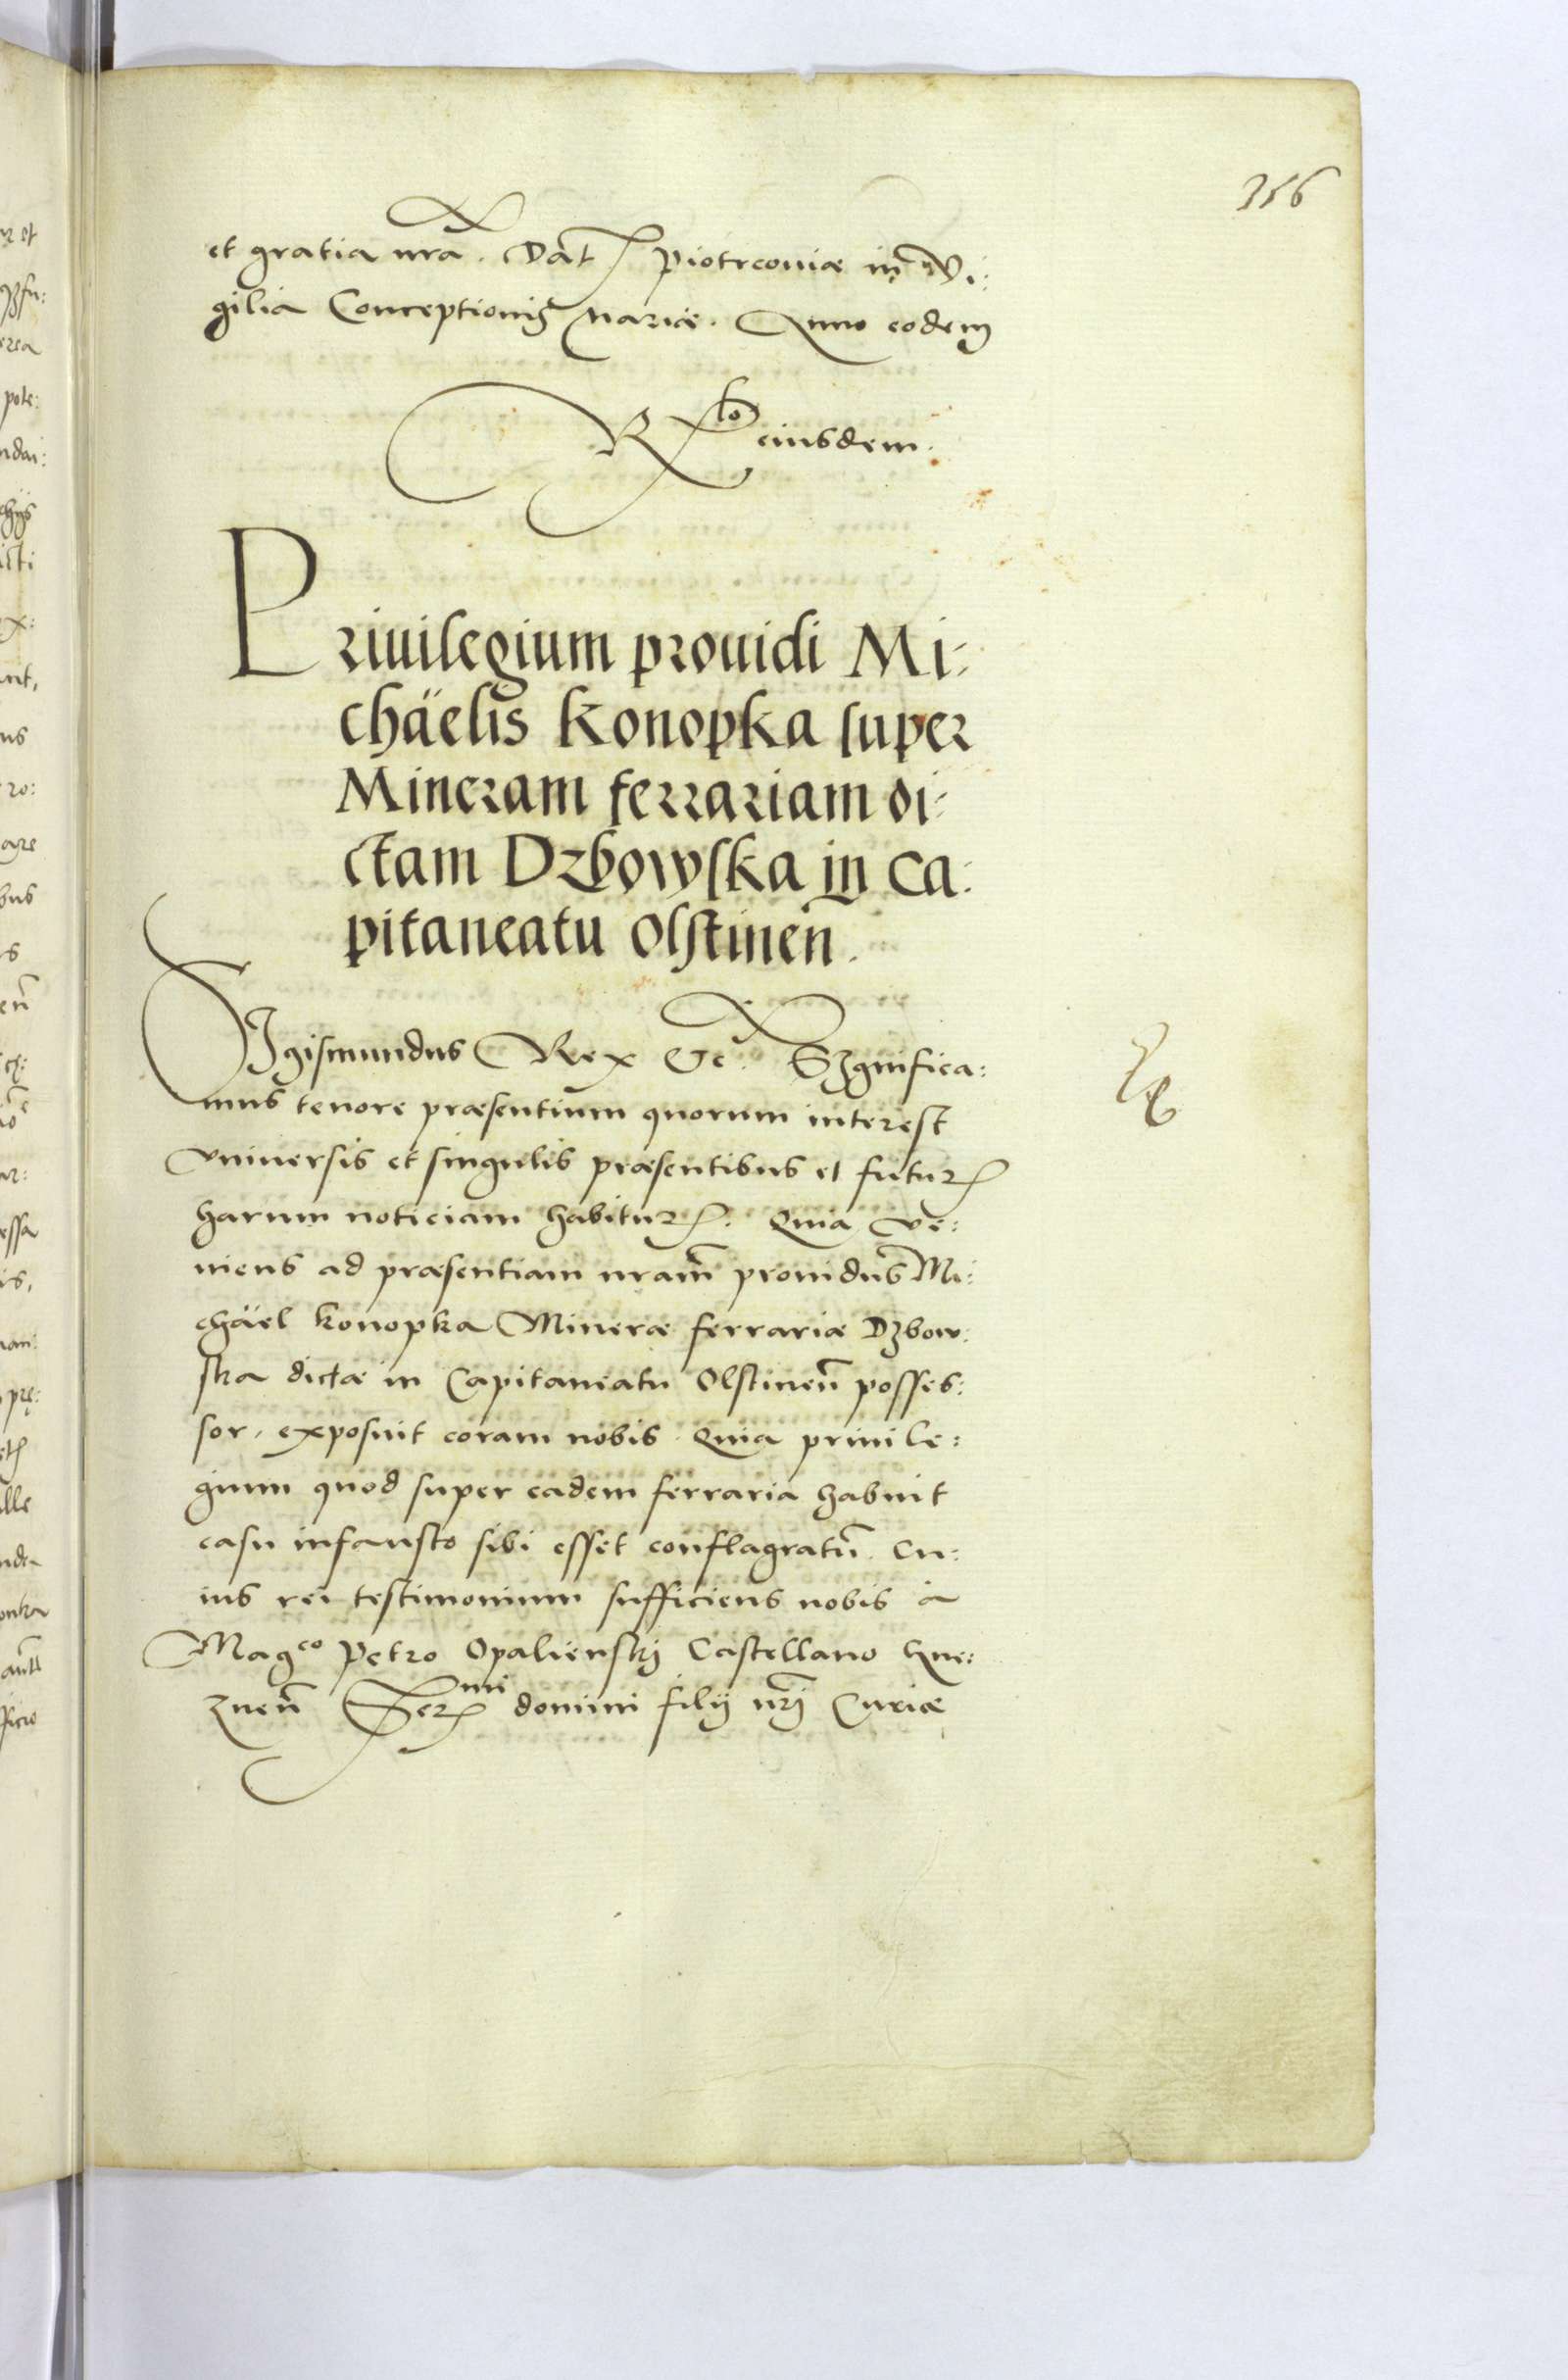 356
et gratia nra. Dat Piotrcoviæ in Vi:
gilia Conceptionis Mariæ. Anno eodem
R<sup>lo</sup> eiusdem.
Priuilegium prouidi Mi:
chäelis Konopka super
Mineram ferrariam di:
ctam Dzbowska in Ca:
pitaneatu Olstinen̄.
SIgismundus Rex &c. SIgnifica:
mus tenore præsentium quorum interest
vniuersis et singulis præsentibus et futur
harum noticiam habitur. Quia ve:
niens ad præsentiam nram̄ prouidus Mi:
chäel Konopka Mineræ ferrariæ Dzbow:
ska dictæ in Capitaneatu Olstinen̄ posses:
sor, exposuit coram nobis. Quia priuile:
gium quod super eadem ferraria habuit
casu infausto sibi esset conflagratū. Cu:
ius rei testimonium sufficiens nobis à
Mag<sup>co</sup> Petro Opalienskj Castellano Gne:
znen̄ Ser<sup>mi</sup> domini filij nrj Curiæ